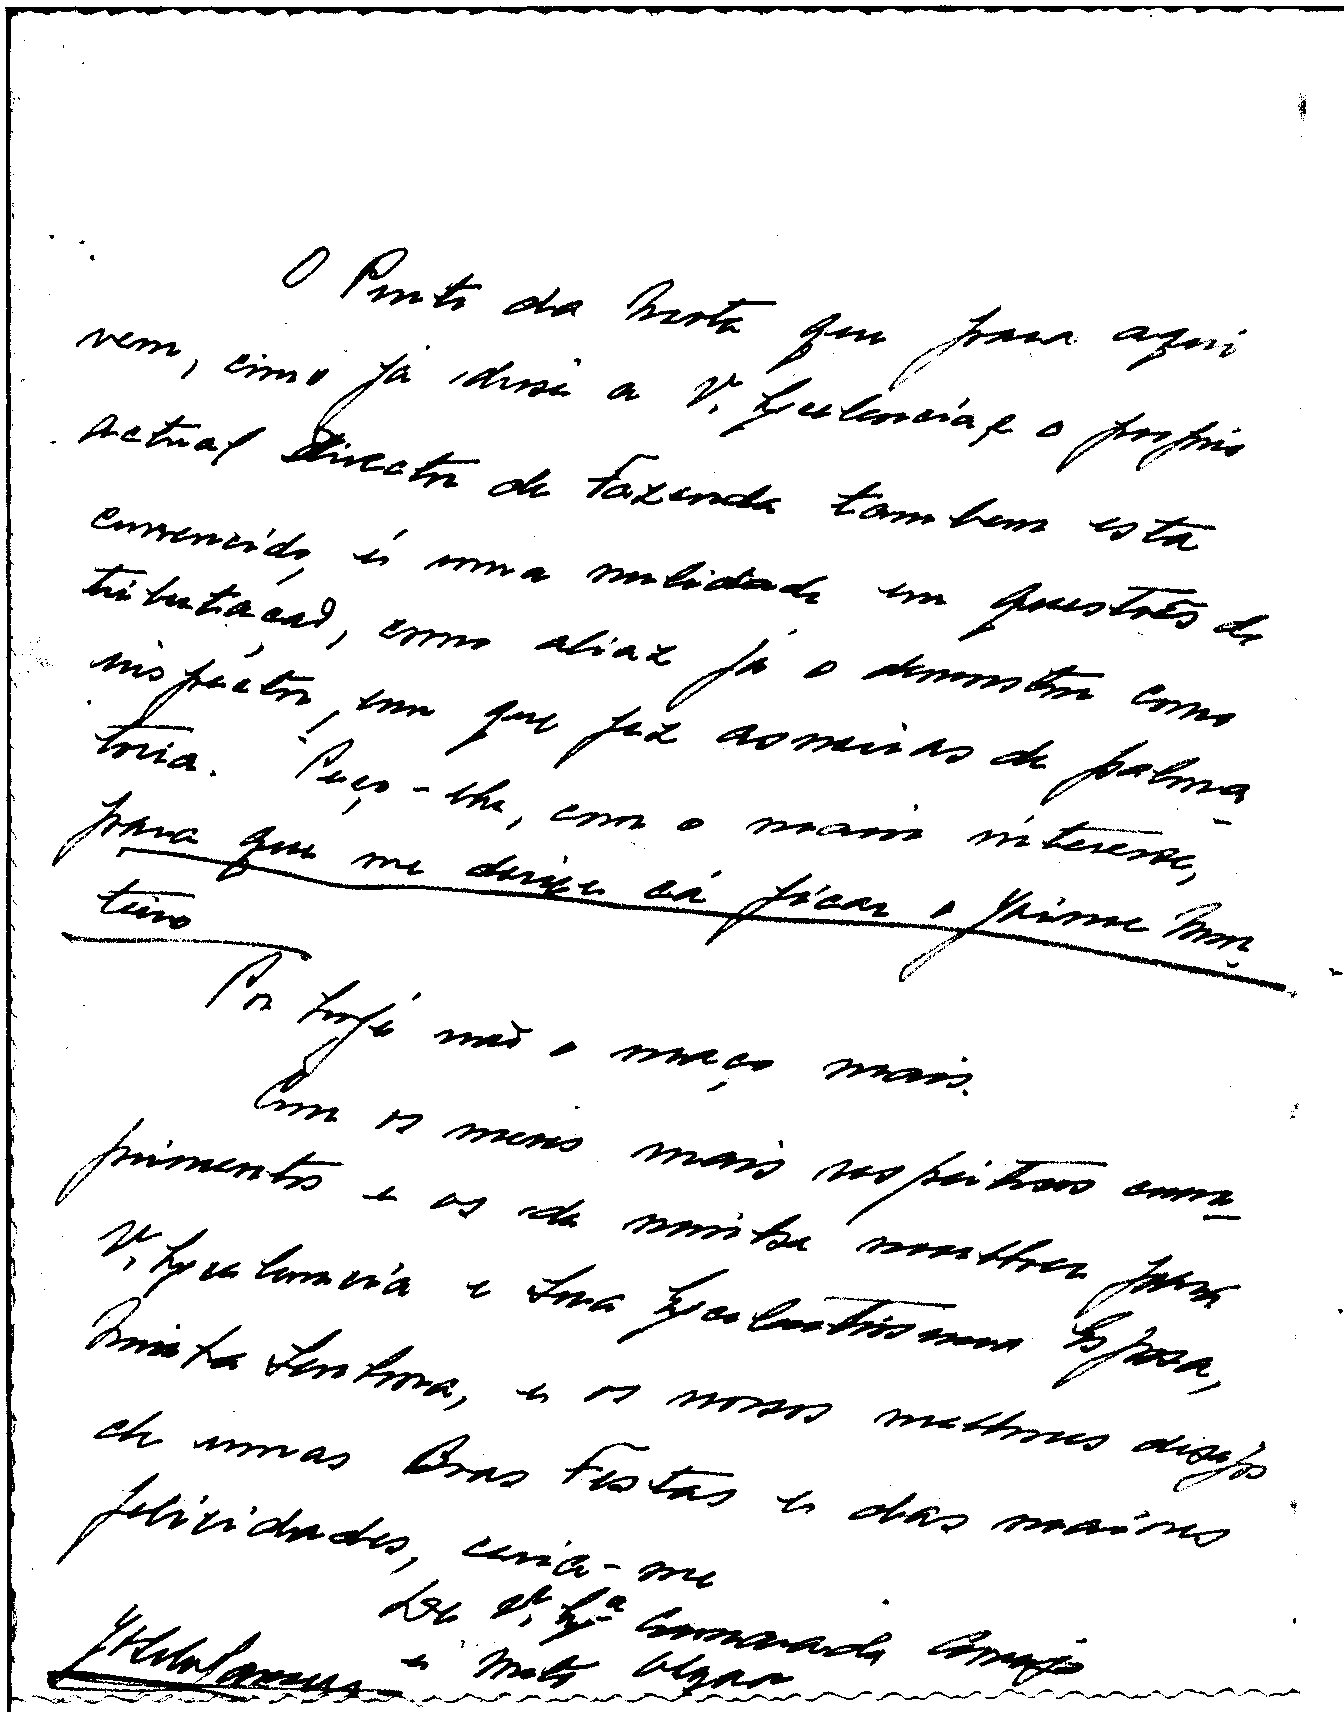 O Pinto da Mota que para aqui
vem, como já disse a V. Excelencia e o proprio
actual Director de Fazenda tambem está
convencido, é uma nulidade em questões de
tributação, como aliaz já o demonstrou como
inspector, em que fez asneiras de palma-
toria. Peço-lhe, com o maior interesse,
para que me deixe cá ficar o Jaime Mon-
teiro
Por hoje não o maço mais.
Com os meus mais respeitosos cum-
primentos e os de minha mulher para
V. Excelencia e Sua Excelentissima Esposa,
Minha Senhora, e os nossos melhores desejos
de umas Boas Festas e das maiores
felicidades, creia-me
De V. Exª Camarada Amigo
e Mto Obgdo